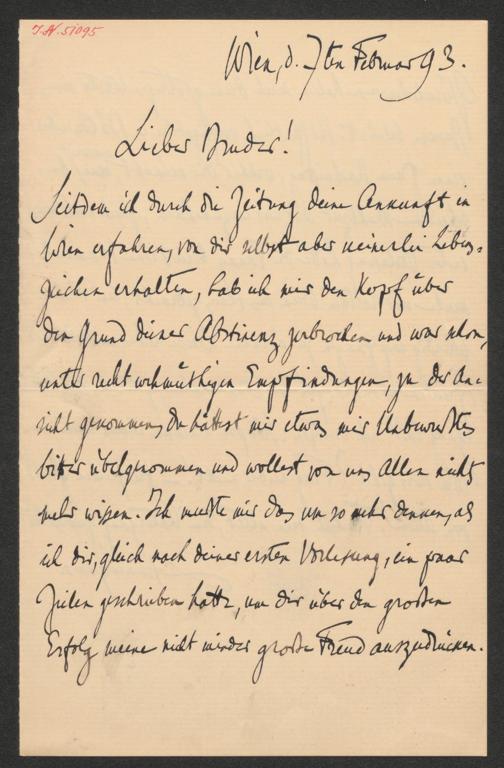 J. N. 51095
Wien, d. 7ten Februar 93.
Lieber Bruder!
Seitdem ich durch die Zeitung deine Ankunft in
Wien erfahren, von dir selbst aber keinerlei Lebens-
zeichen erhalten, hab ich mir den Kopf über
den Grund deiner Abstinenz zerbrochen und war schon,
unter recht wehmüthigen Empfindungen, zu der An-
sicht gekommen, du hättest mir etwas mir Unbewußtes
bitter übelgenommen und wollest von uns Allen nichts
mehr wissen. Ich mußte mir das um so mehr denken, als
ich dir, gleich nach deiner ersten Vorlesung, ein paar
Zeilen geschrieben hatte, um dir über den großen
Erfolg meine nicht minder große Freud auszudrücken.